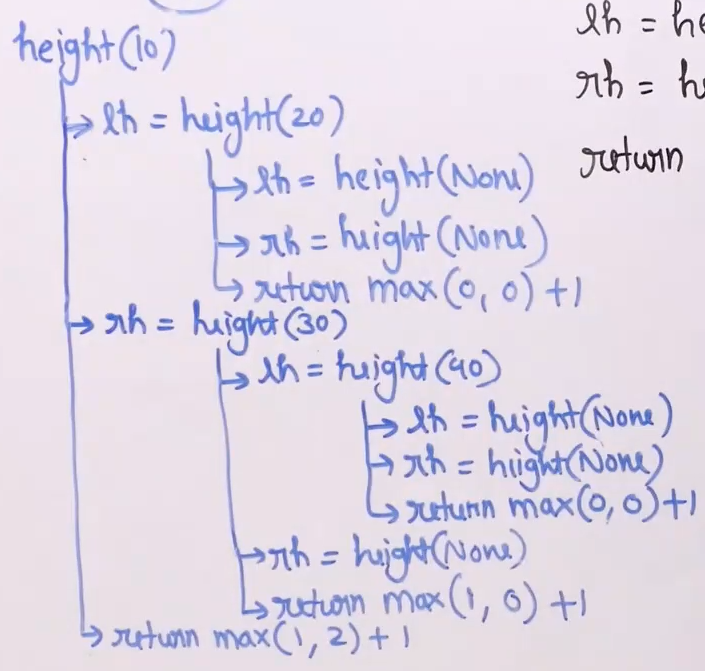 height(10)
lh = height(20)
lh = height(None)
rh = height(None)
return max(0, 0) +1
rh = height(30)
lh = height(40)
lh = height(None)
rh = height(None)
return max(0, 0)+1
rh = height(None)
return max(1, 0) +1
return max(1, 2) + 1
lh = he
rh = h
return